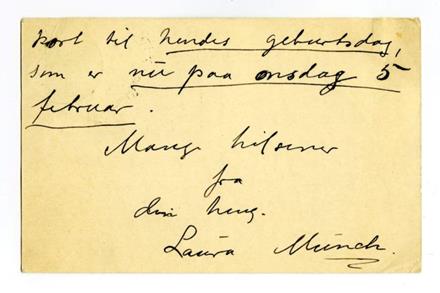 kort til hendes geburtsdag,
som er nu paa onsdag 5
februar.
Mange hilsener
fra
din heng.
Laura Munch.